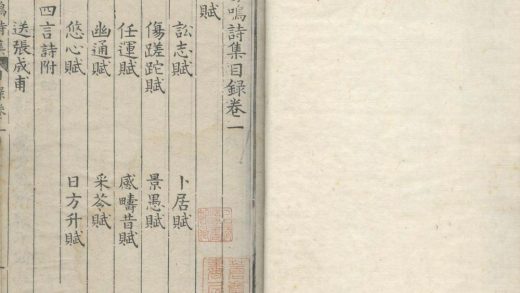 鳴詩集目録卷一
賦
訟志賦　卜居賦
傷蹉跎賦　景愚賦
任運賦　感疇昔賦
幽通賦　采苓賦
悠心賦　日方升賦
四言詩附
送張成甫